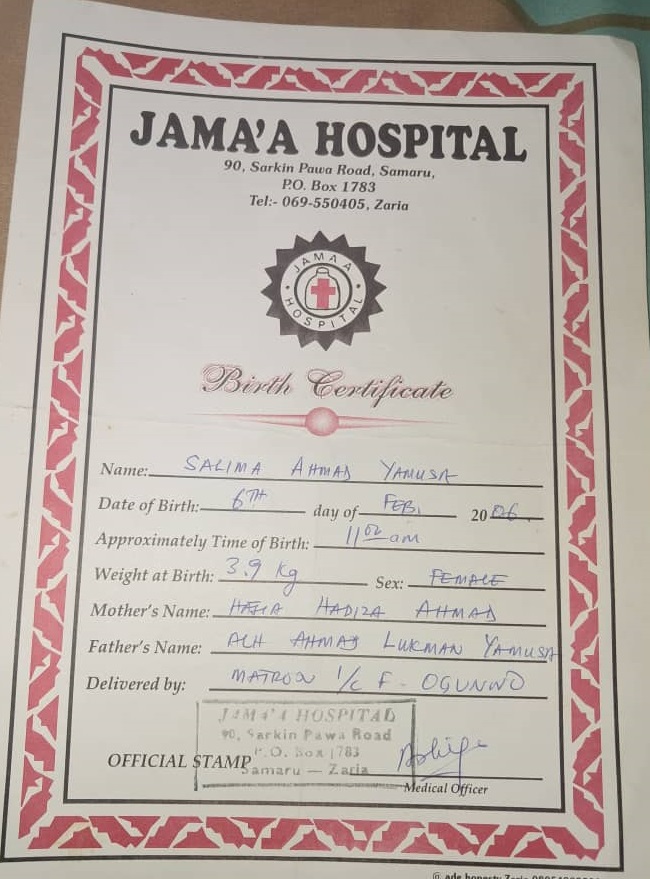 JAMA'A HOSPITAL
90, Sarkin Pawa Road, Samaru,
P.O. Box 1783
Tel:- 069-550405, Zaria
JAMAA
HOSPITAL
Birth Certificate
Name: SALIMA AHMAD YAMUSA
Date of Birth: 6TH day of FEB, 2006
Approximately Time of Birth: 11 02 am
Weight at Birth: 3.9 kg Sex: FEMALE
Mother's Name: HADIZA AHMAD
Father's Name: ALH AHMAD LUKMAN YAMUSA
Delivered by: MATRON I/C F. OGUNWO
JAMA'A HOSPITAL
90, Sarkin Pawa Road
P.O. Box 1783
Samaru — Zaria
OFFICIAL STAMP
Medical Officer
@ ade honesty Zaria